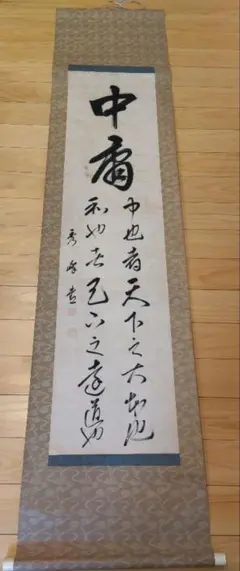 中庸
中也者天下之大本也
和也者天下之達道也